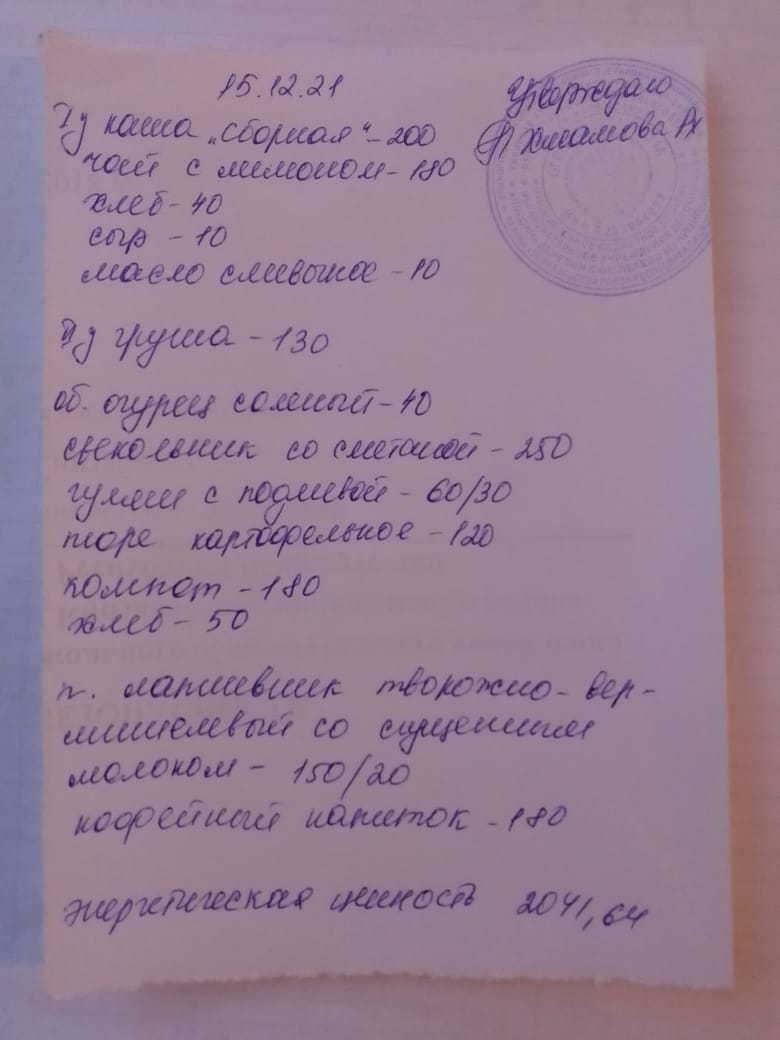 15.12.21
Утверждаю
Iу каша „сборная“ - 200
чай с лимоном - 180
хлеб - 40
сыр - 10
масло сливычое - 10
IIу груша - 130
об. огурец соленый - 40
свекольник со сметаной - 250
гуляш с подливой - 60/30
пюре картофельное - 120
компот - 180
хлеб - 50
п. лапшевник творожно-вер-
мишелевый со сгущенным
молоком - 150/20
кофейный напиток - 180
энергетическая ценность 2041,64